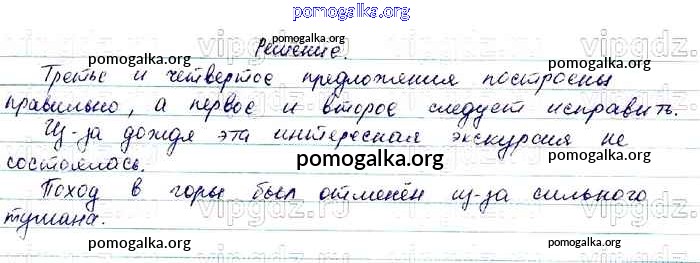 pomogalka.org
Решение.
Третье и четвертое предложения построены
правильно, а первое и второе следует исправить.
Из-за дождя эта интересная экскурсия не
состоялась.
Поход в горы был отменён из-за сильного
тумана.
pomogalka.org
pomogalka.org
pomogalka.org
pomogalka.org
pomogalka.org
pomogalka.org
pomogalka.org
pomogalka.org